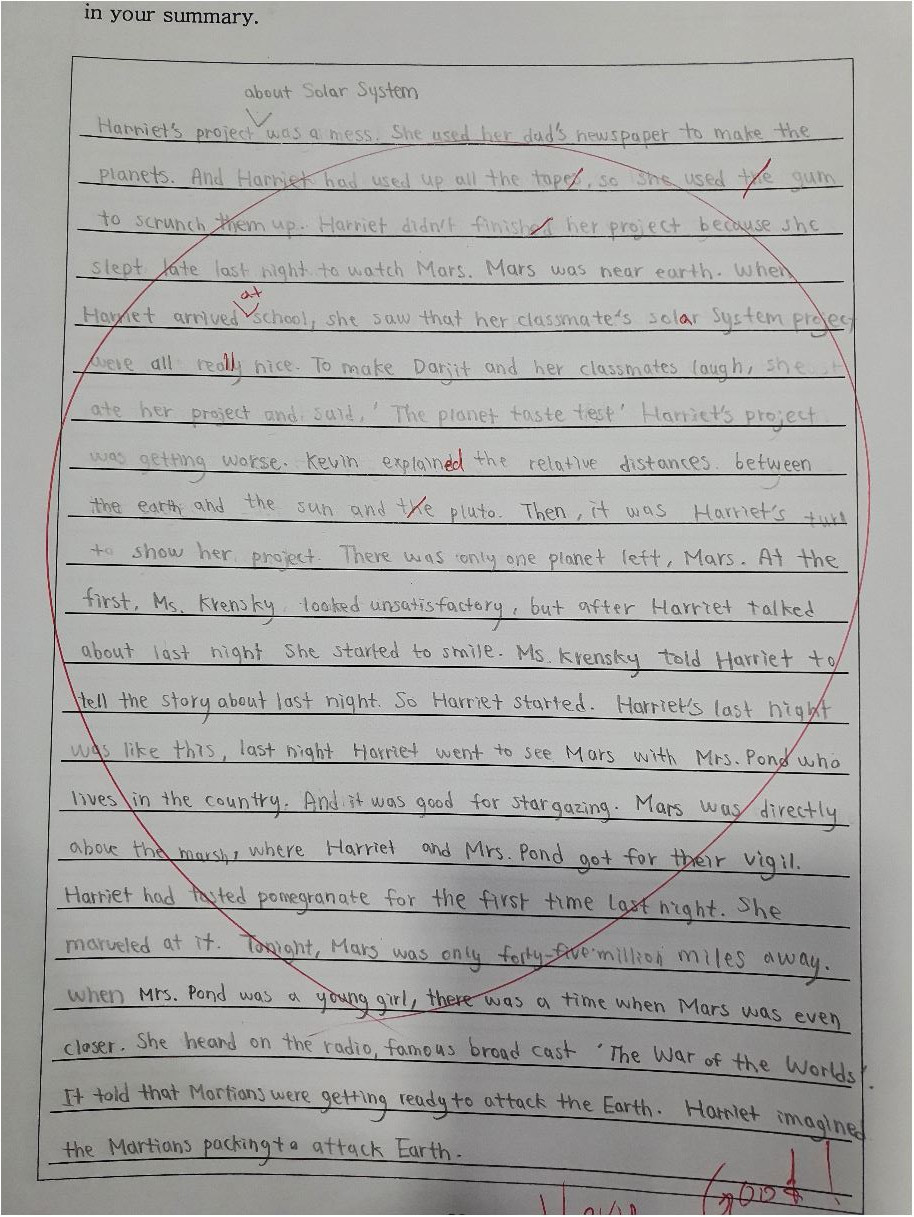 in your summary.
about Solar System
Harriet's project was a mess. She used her dad's newspaper to make the
planets. And Harriet had used up all the tapes, so she used the gum
to scrunch them up. Harriet didn't finished her project because she
slept late last night to watch Mars. Mars was near earth. When
at
Harriet arrived school, she saw that her classmate's solar System project
were all really nice. To make Darjit and her classmates laugh, she
ate her project and said, 'The planet taste test' Harriet's project
was getting worse. Kevin explained the relative distances between
the earth and the sun and the pluto. Then, it was Harriet's turn
to show her project. There was only one planet left, Mars. At the
first, Ms. Krensky looked unsatisfactory, but after Harriet talked
about last night She started to smile. Ms. Krensky told Harriet to
tell the story about last night. So Harriet started. Harriet's last night
was like this, last night Harriet went to see Mars with Mrs. Pond who
lives in the country. And it was good for stargazing. Mars was directly
above the marsh, where Harriet and Mrs. Pond got for their vigil.
Harriet had tasted pomegranate for the first time last night. She
marveled at it. Tonight, Mars was only forty-five million miles away.
when Mrs. Pond was a young girl, there was a time when Mars was even
closer. She heard on the radio, famous broad cast 'The War of the Worlds'.
It told that Martians were getting ready to attack the Earth. Harriet imagined
the Martians packing to attack Earth.
Good!